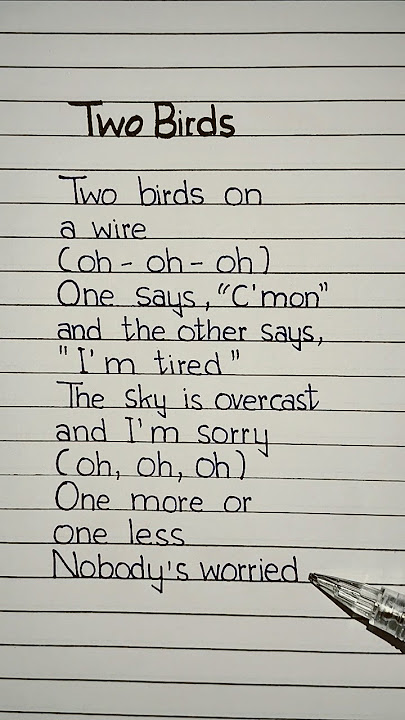 Two Birds
Two birds on
a wire
(oh - oh - oh)
One says, "C'mon"
and the other says,
"I'm tired"
The sky is overcast
and I'm sorry
(oh, oh, oh)
One more or
one less
Nobody's worried